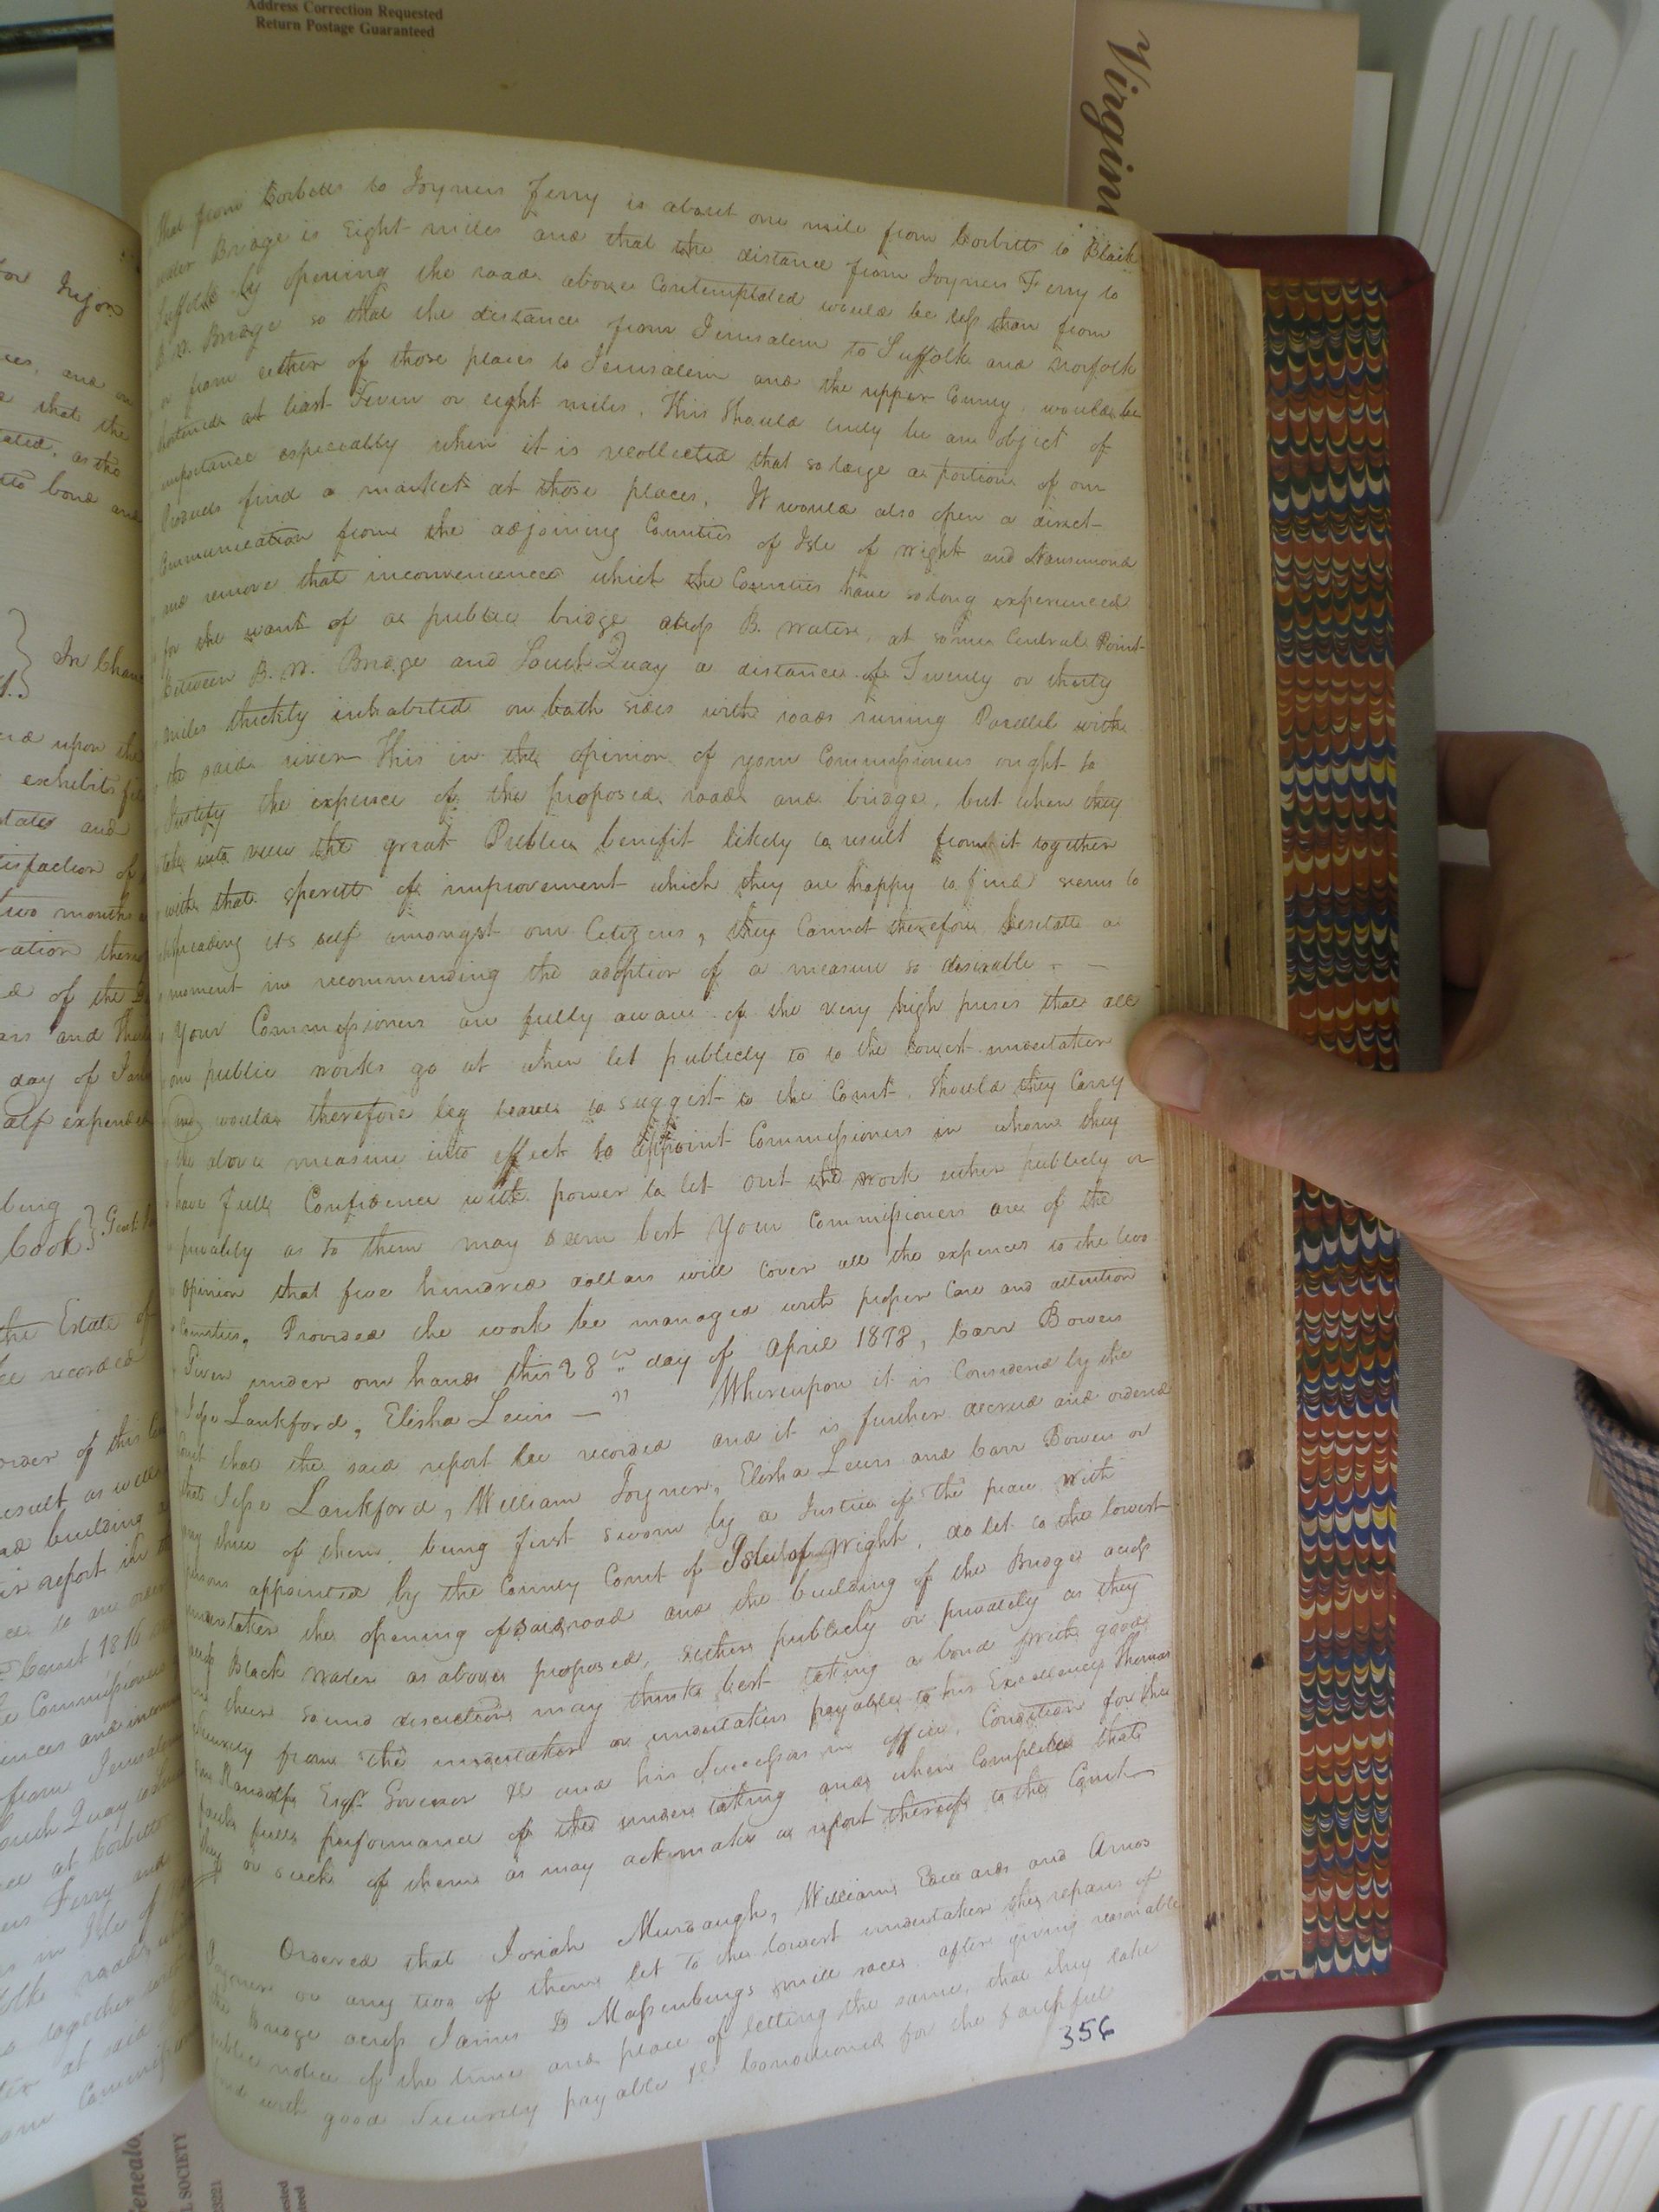 Address Correction Requested
Return Postage Guaranteed
Virgin
that from Corbetts to Joyners Ferry is about one mile from Corbitts to Black
water Bridge is Eight miles and that the distance from Joyners Ferry to
Suffolk by opening the road above Contemplated would be less than from
B. W. Bridge so that the distance from Jerusalem to Suffolk and Norfolk
or from either of those places to Jerusalem and the upper County would be
shortened at least Seven or eight miles. This Should indy be an object of
importance especially when it is recollected that so large a portion of our
Products find a market at those places, It would also open a direct
Communication from the adjoining Counties of Isle of Wight and Nansemond
and remove that inconvenience which the Counties have so long experienced
for the want of a public bridge across B. Water, at some Central Point
between B. W. Bridge and South Quay a distance of Twenty or thirty
miles thickly inhabited on both sides with roads runing Parallel with
the said river This in the opinion of your Commissioners ought to
Justify the expence of the proposed road and bridge, but when they
take into view the great Public benefit likely to result from it together
with that speritt of improvement which they are happy to find seems to
spreading its self amongst our Citizens, they Cannot therefore hesitate a
moment in recommending the adoption of a measure so desirable. —
Your Commissioners are fully aware of the very high prices that all
our public works go at when let publicly to to the lowest undertaker
and would therefore beg leave to suggest to the Court, Should they Carry
the above measure into effect to appoint Commissioners in whom they
have full Confidence with power to let out the work either publicly or
privately as to them may seem best Your Commissioners are of the
opinion that five hundred dollars will cover all the expences to the two
Counties, Provided the work be managed with proper Care and attention
Given under our hands this 28 th day of April 1878, Carr Bowers
Jesse Lankford, Elisha Lewis — " Whereupon it is Considered by the
Court that the said report be recorded and it is further decreed and ordered
that Jesse Lankford, William Joyner, Elisha Lewis and Carr Bowers or
any three of them, being first sworn by a Justice of the peace with
persons appointed by the County Court of Isle of Wight, do let to the lowest
undertaker the opening of said road and the building of the Bridge across
across Black Water as above proposed, either publicly or privately as they
in their sound discretion may think best taking a bond with good
Security from the undertaker or undertakers payable to his Excellency Thomas
Mann Randolph Esqr. Governor &c and his Successors in office, Condition for the
faithful performance of the undertaking and when Completed that
they or such of them as may act make a report thereof to the Court
Ordered that Josiah Murdaugh, William Edwards and Amos
Joyner or any two of them let to the lowest undertaker the repairs of
the Bridge across James D Massenburgs mill race, after giving reasonable
public notice of the time and place of letting the same, that they take
bond with good Security payable &c Conditioned for the faithful
356
for Injon
and on
that the
as the
bond and
In Chan
upon the
exhibits
and
tisfaction of
two months
ration
of the
and
day of Jan
half expended
being
Cook
the Estate of
recorded
order of this
result, as well
building
report in
Court 1816
Commissioners
from Jerusalem
South Quay
at Corbitts
Ferry and
in Isle of
roads
together
at said
Genealo
L SOCIETY
23221